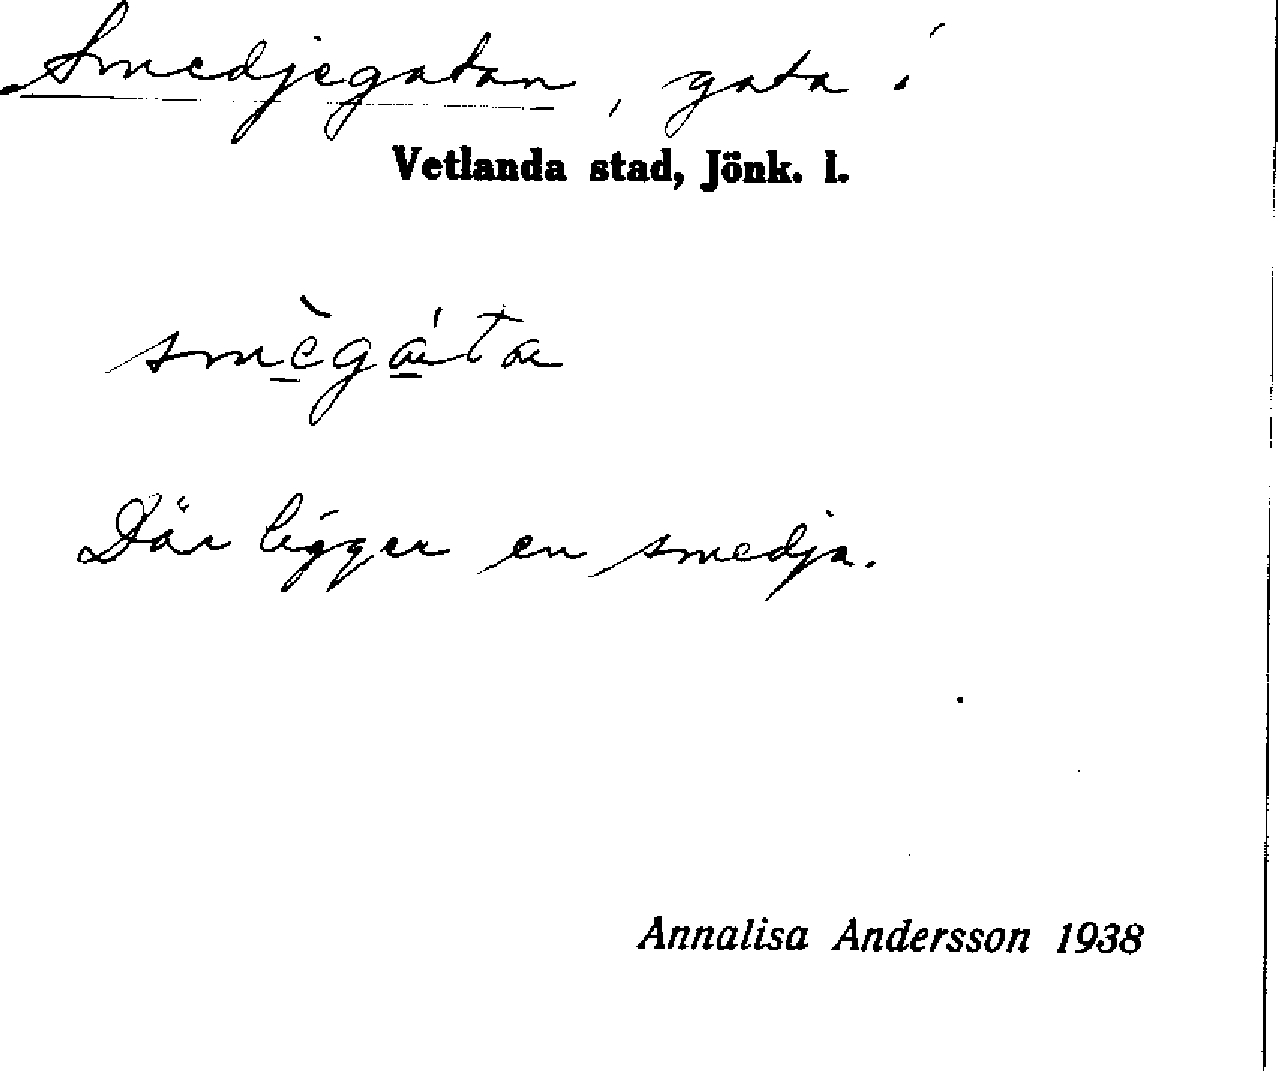 Smedjegatan, gata i
Vetlanda stad, Jönk. l.
smègáta
Där ligger en smedja.
Annalisa Andersson 1938